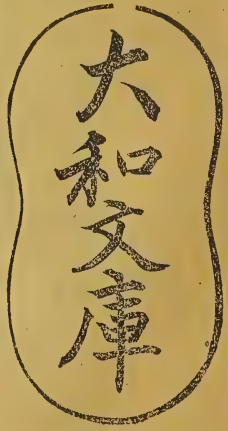 大和文庫